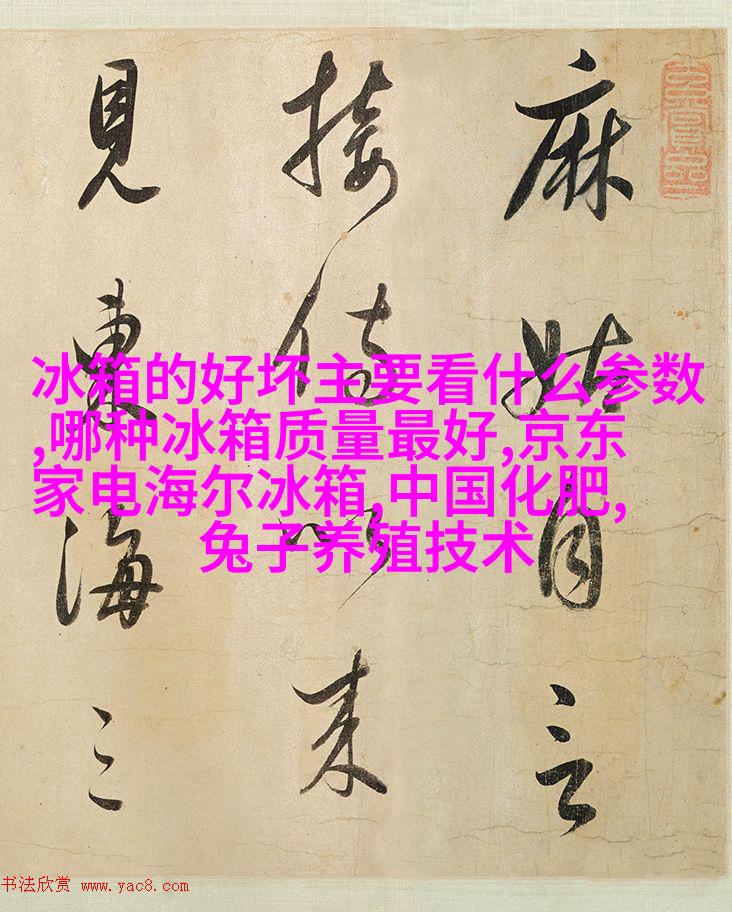 麻姑自言
接侍以来
見東海三
冰箱的好坏主要看什么参数
,哪种冰箱质量最好,京东
家电海尔冰箱,中国化肥,
兔子养殖技术
书法欣赏 www.yac8.com